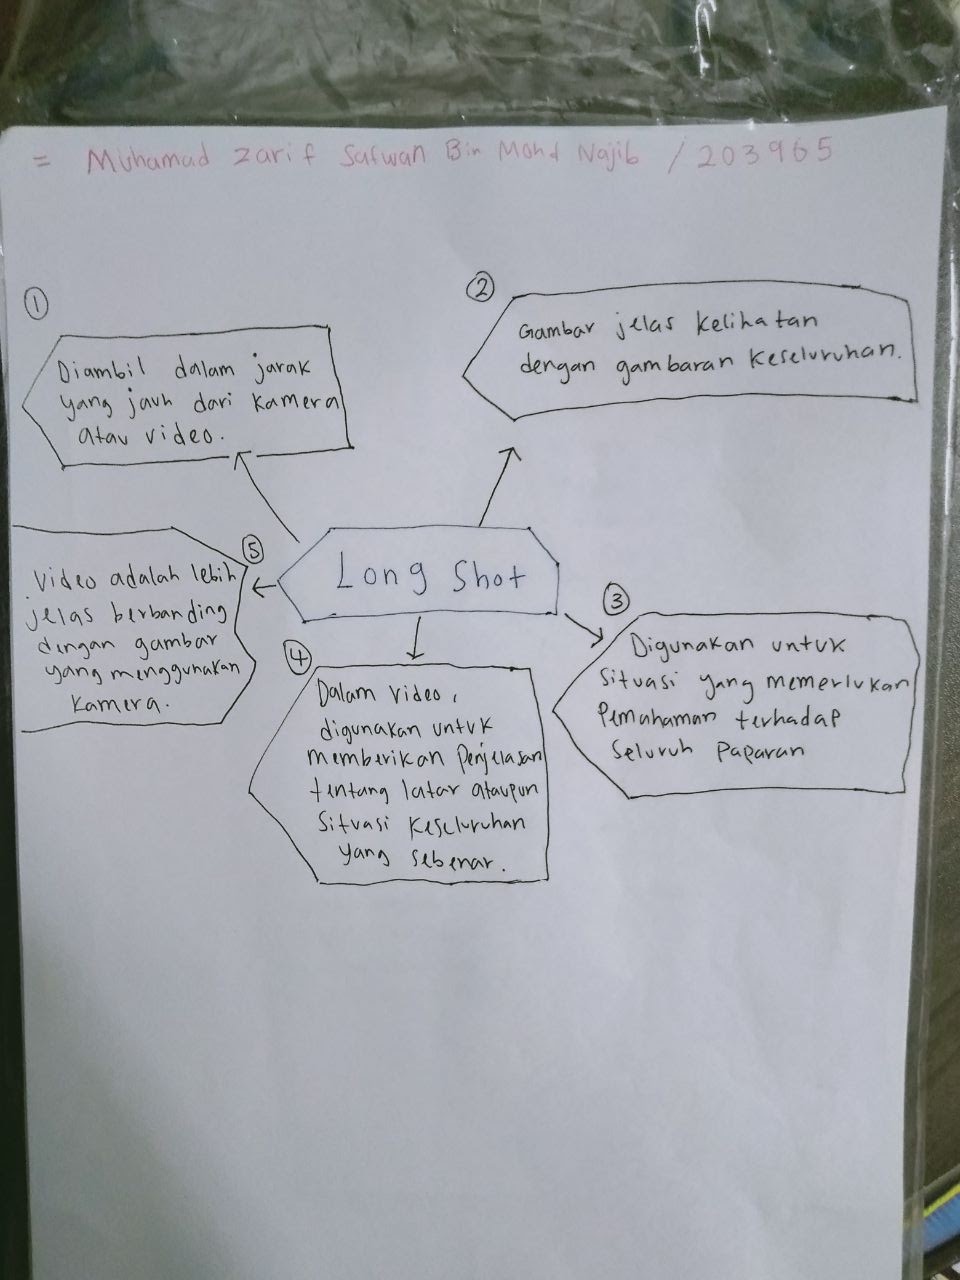 = Muhamad Zarif Safwan Bin Mohd Najib / 203965
①
Diambil dalam jarak
yang jauh dari kamera
atau video.
②
Gambar jelas kelihatan
dengan gambaran keseluruhan.
Long Shot
③
Digunakan untuk
situasi yang memerlukan
Pemahaman terhadap
seluruh paparan
④
Dalam video,
digunakan untuk
memberikan penjelasan
tentang latar ataupun
situasi keseluruhan
yang sebenar.
⑤
Video adalah lebih
jelas berbanding
dengan gambar
yang menggunakan
kamera.